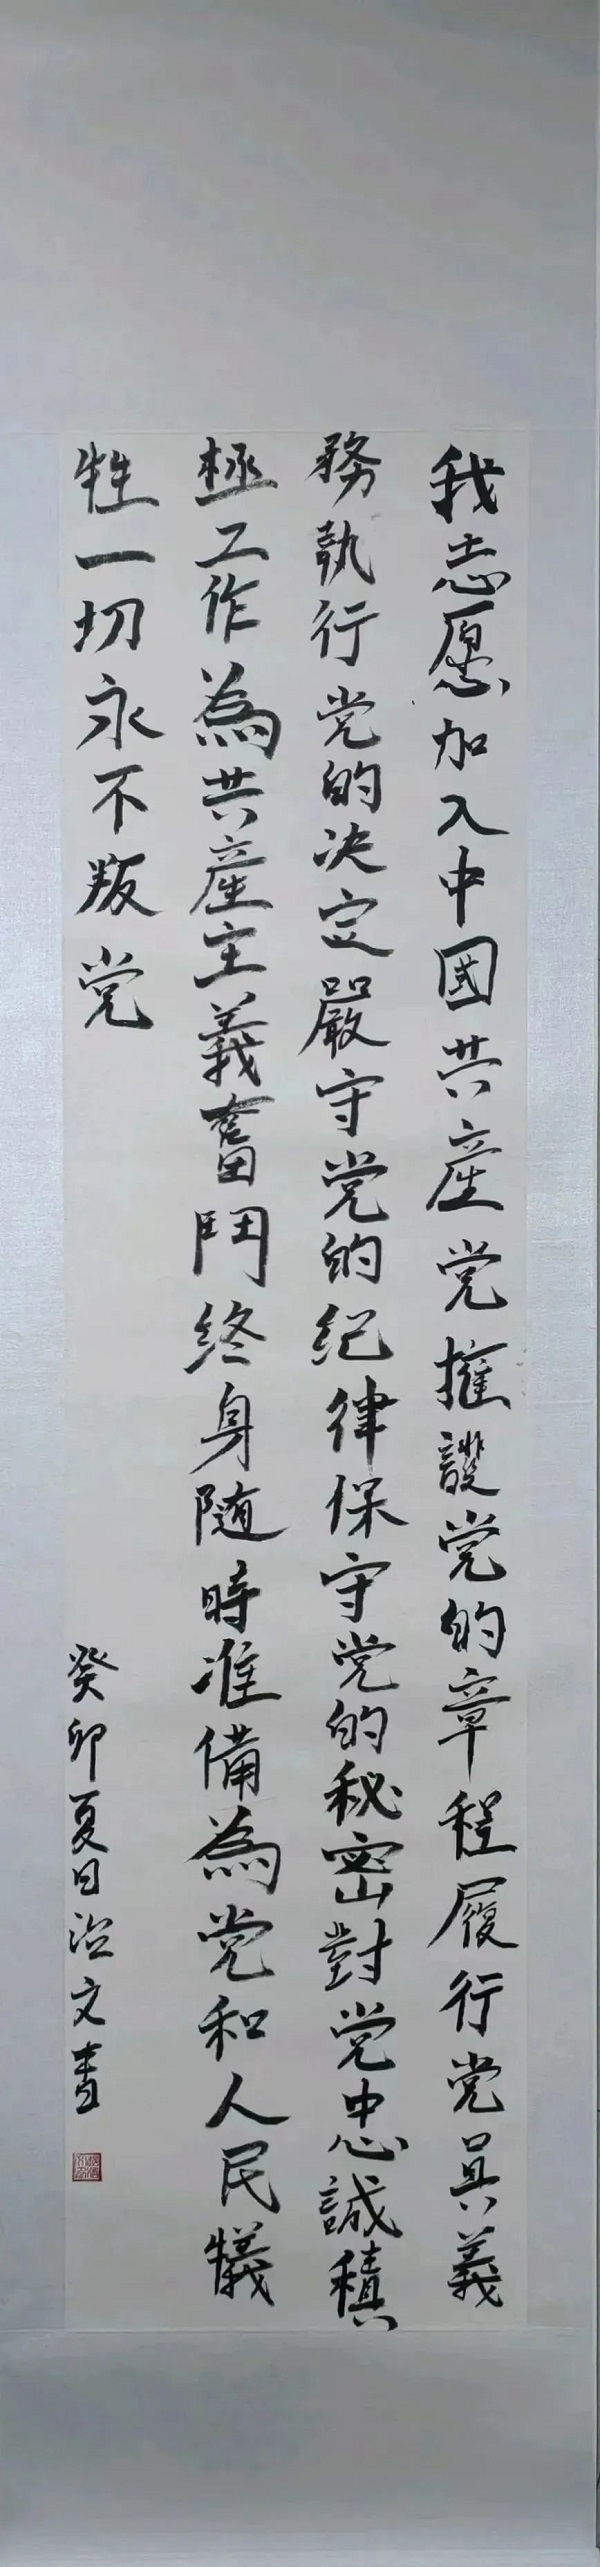 我志愿加入中國共産党擁護党的章程履行党員義
務執行党的决定嚴守党的纪律保守党的秘密對党忠誠積
極工作為共産主義奮鬥终身随時准備為党和人民犧
牲一切永不叛党
癸卯夏日文書